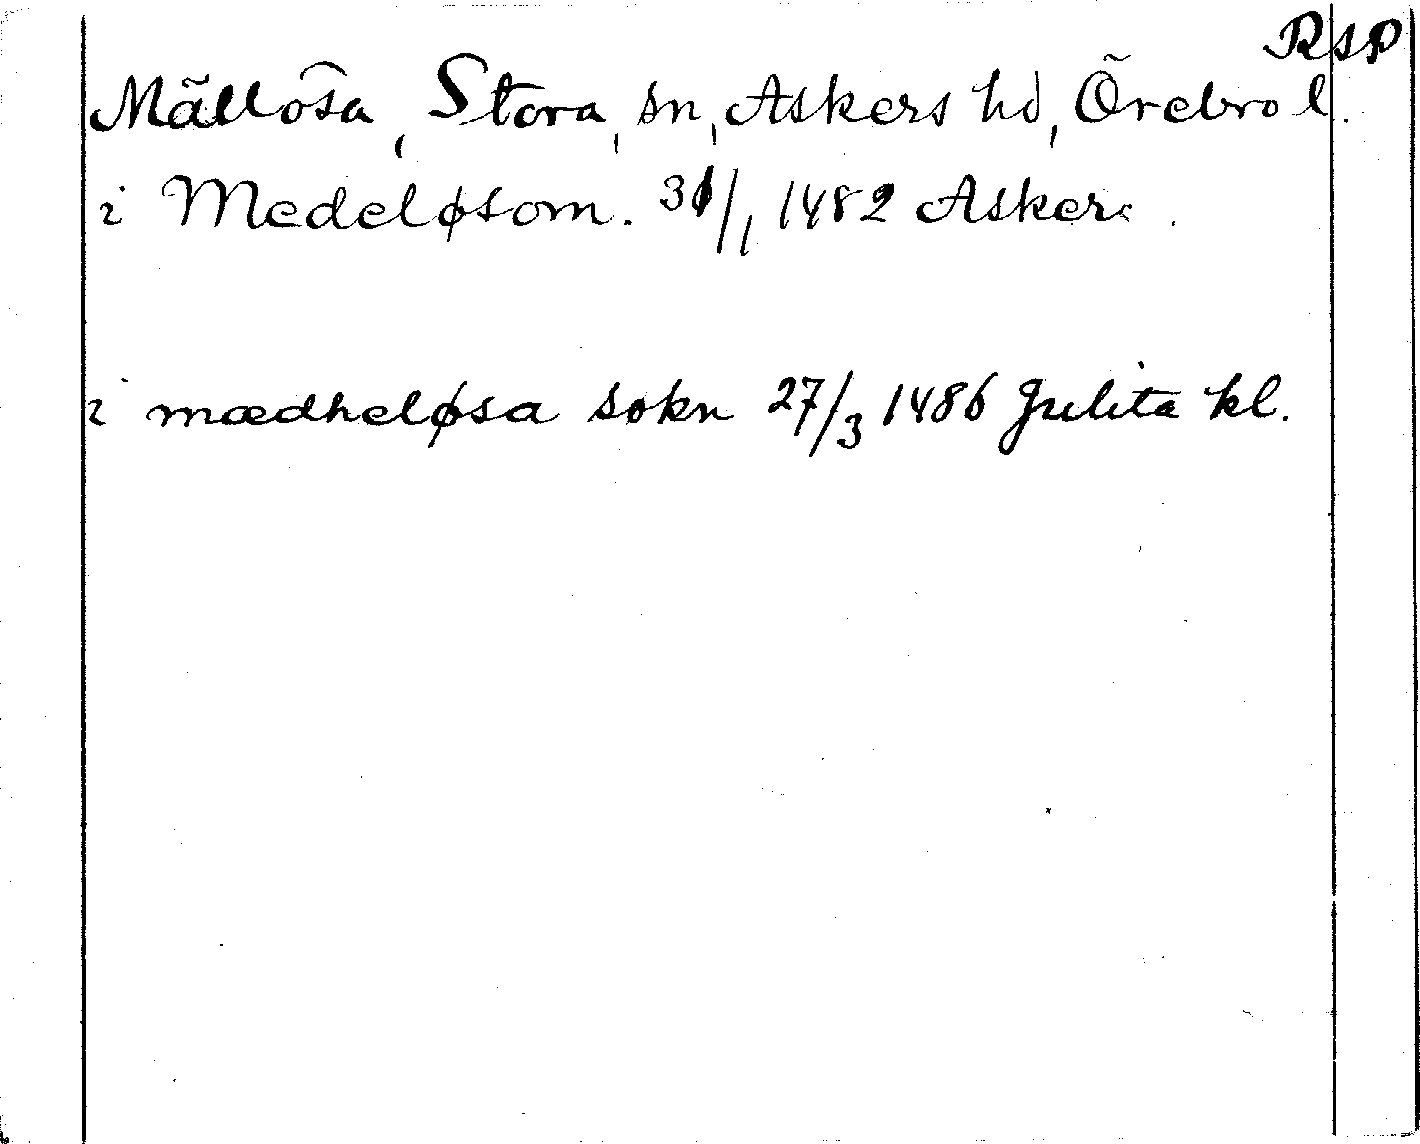 RSP
Mällösa, Stora, sn, Askers hd, Örebro l.
i Medeløsom. 31/1 1482 Askers.
i mædheløsa sokn 27/3 1486 Julita kl.